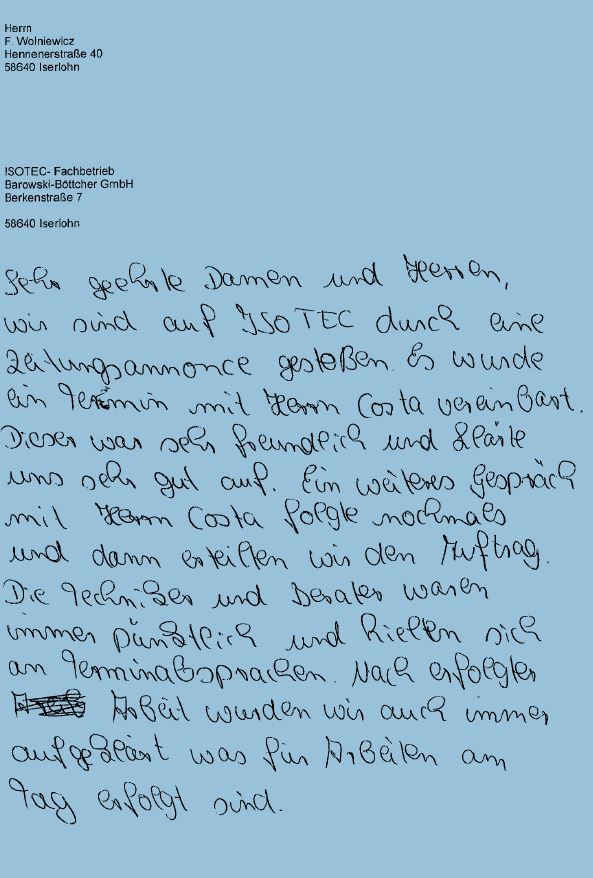 Herrn
F. Wolniewicz
Hennenerstraße 40
58640 Iserlohn
ISOTEC- Fachbetrieb
Barowski-Böttcher GmbH
Berkenstraße 7
58640 Iserlohn
Sehr geehrte Damen und Herren,
wir sind auf ISOTEC durch eine
Zeitungsannonce gestoßen. Es wurde
ein Termin mit Herrn Costa vereinbart.
Dieser war sehr freundlich und klärte
uns sehr gut auf. Ein weiteres Gespräch
mit Herrn Costa folgte nochmals
und dann erteilten wir den Auftrag.
Die Techniker und Berater waren
immer pünktlich und hielten sich
an Terminabsprachen. Nach erfolgter
Arbeit wurden wir auch immer
aufgeklärt was für Arbeiten am
Tag erfolgt sind.